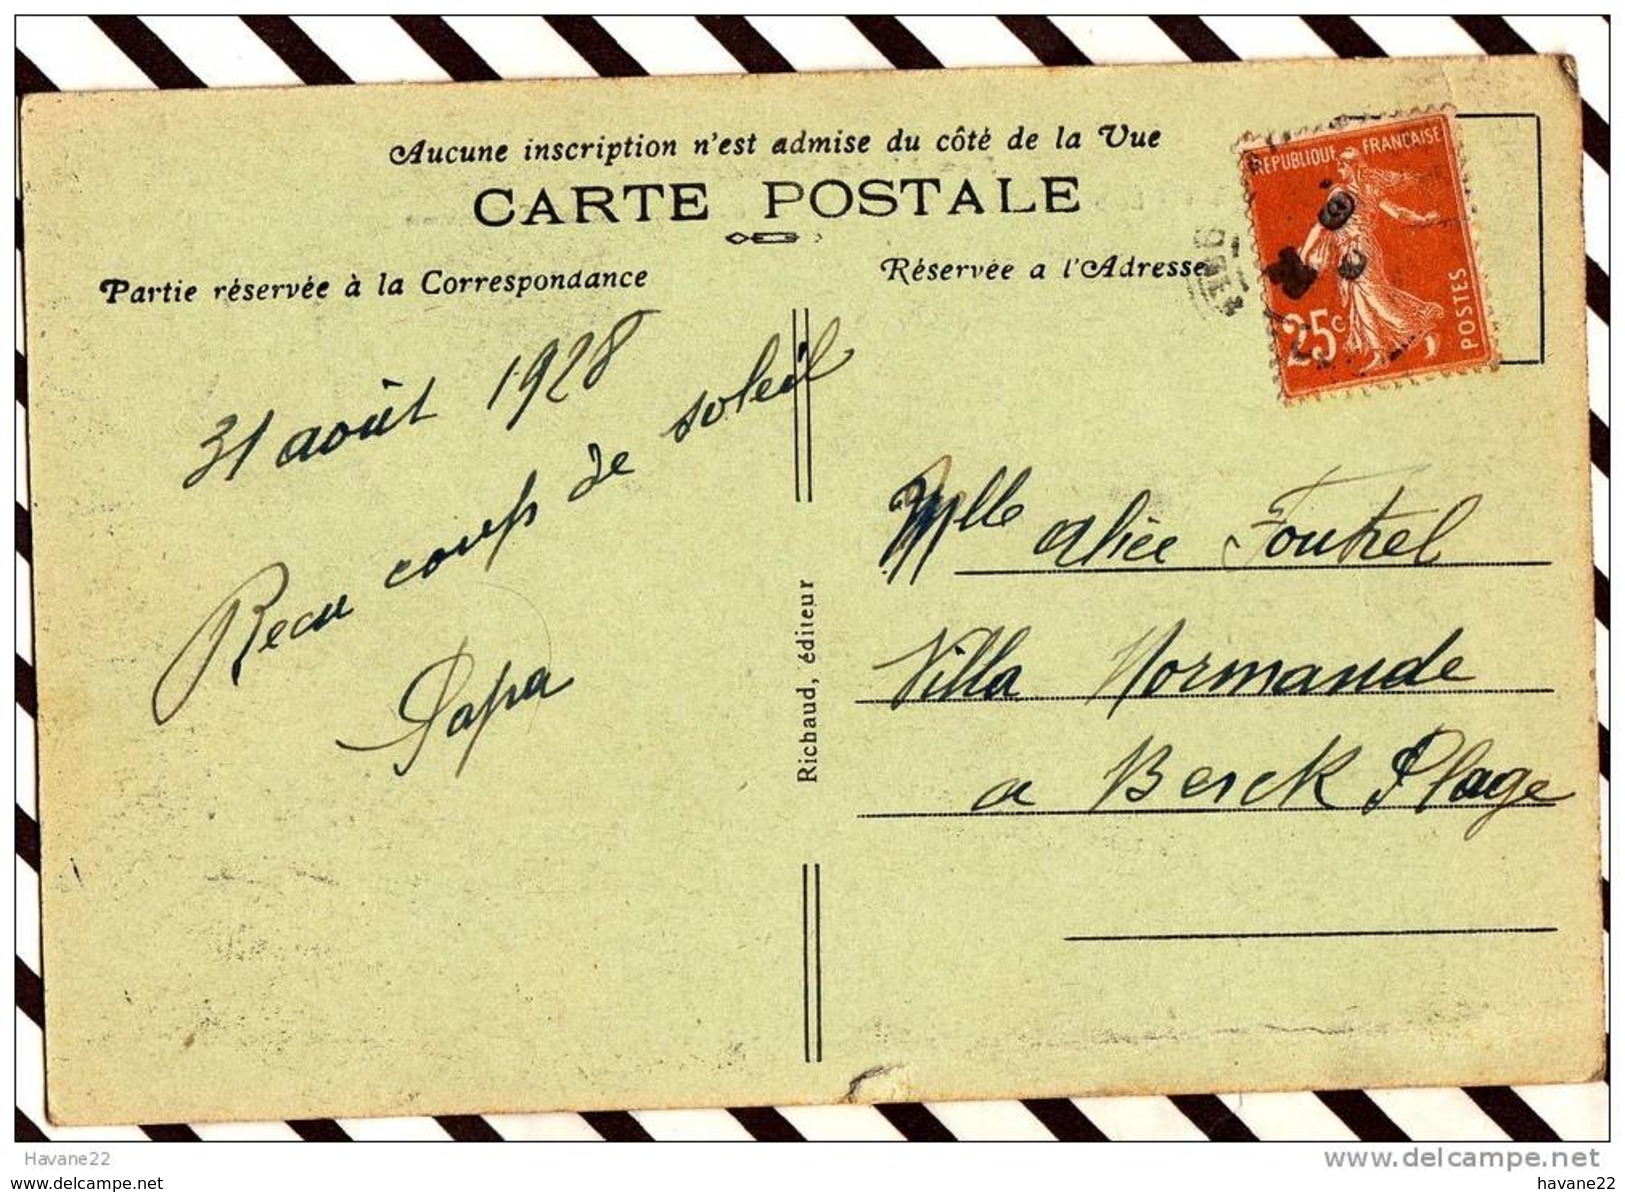 Aucune inscription n'est admise du côté de la Vue
CARTE POSTALE
Partie réservée à la Correspondance
Réservée a l'Adresse
REPUBLIQUE FRANÇAISE
25c
POSTES
31 août 1928
Recu coup de soleil
Papa
Richaud, éditeur
Mlle Alice Foutrel
Villa Normande
a Berck Plage
Havane22
www.delcampe.net
www.delcampe.net
havane22